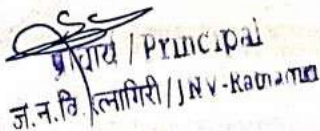 प्राचार्य / Principal
ज.न.वि. रत्नागिरी / JNV-Ratnagiri